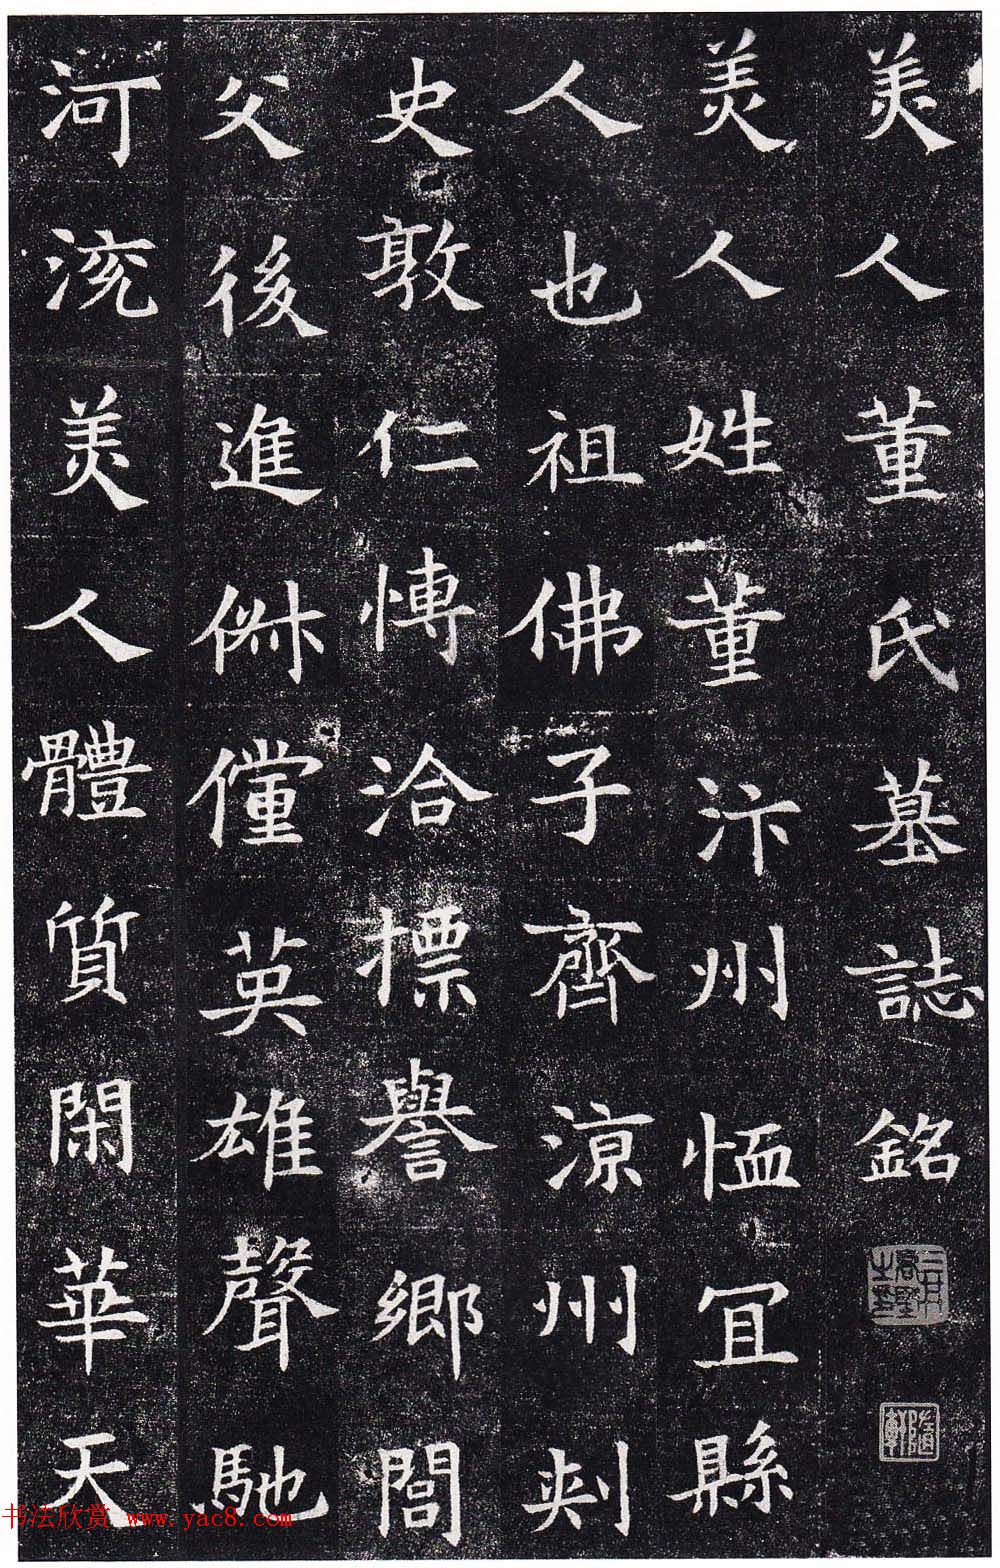 美人董氏墓誌銘
美人姓董汴州恤宜縣
人也祖佛子齊涼州刾
史敦仁愽洽摽譽鄉閭
父後進俶儻英雄聲馳
河流美人體質閑華天
书法欣赏 www.yac8.com